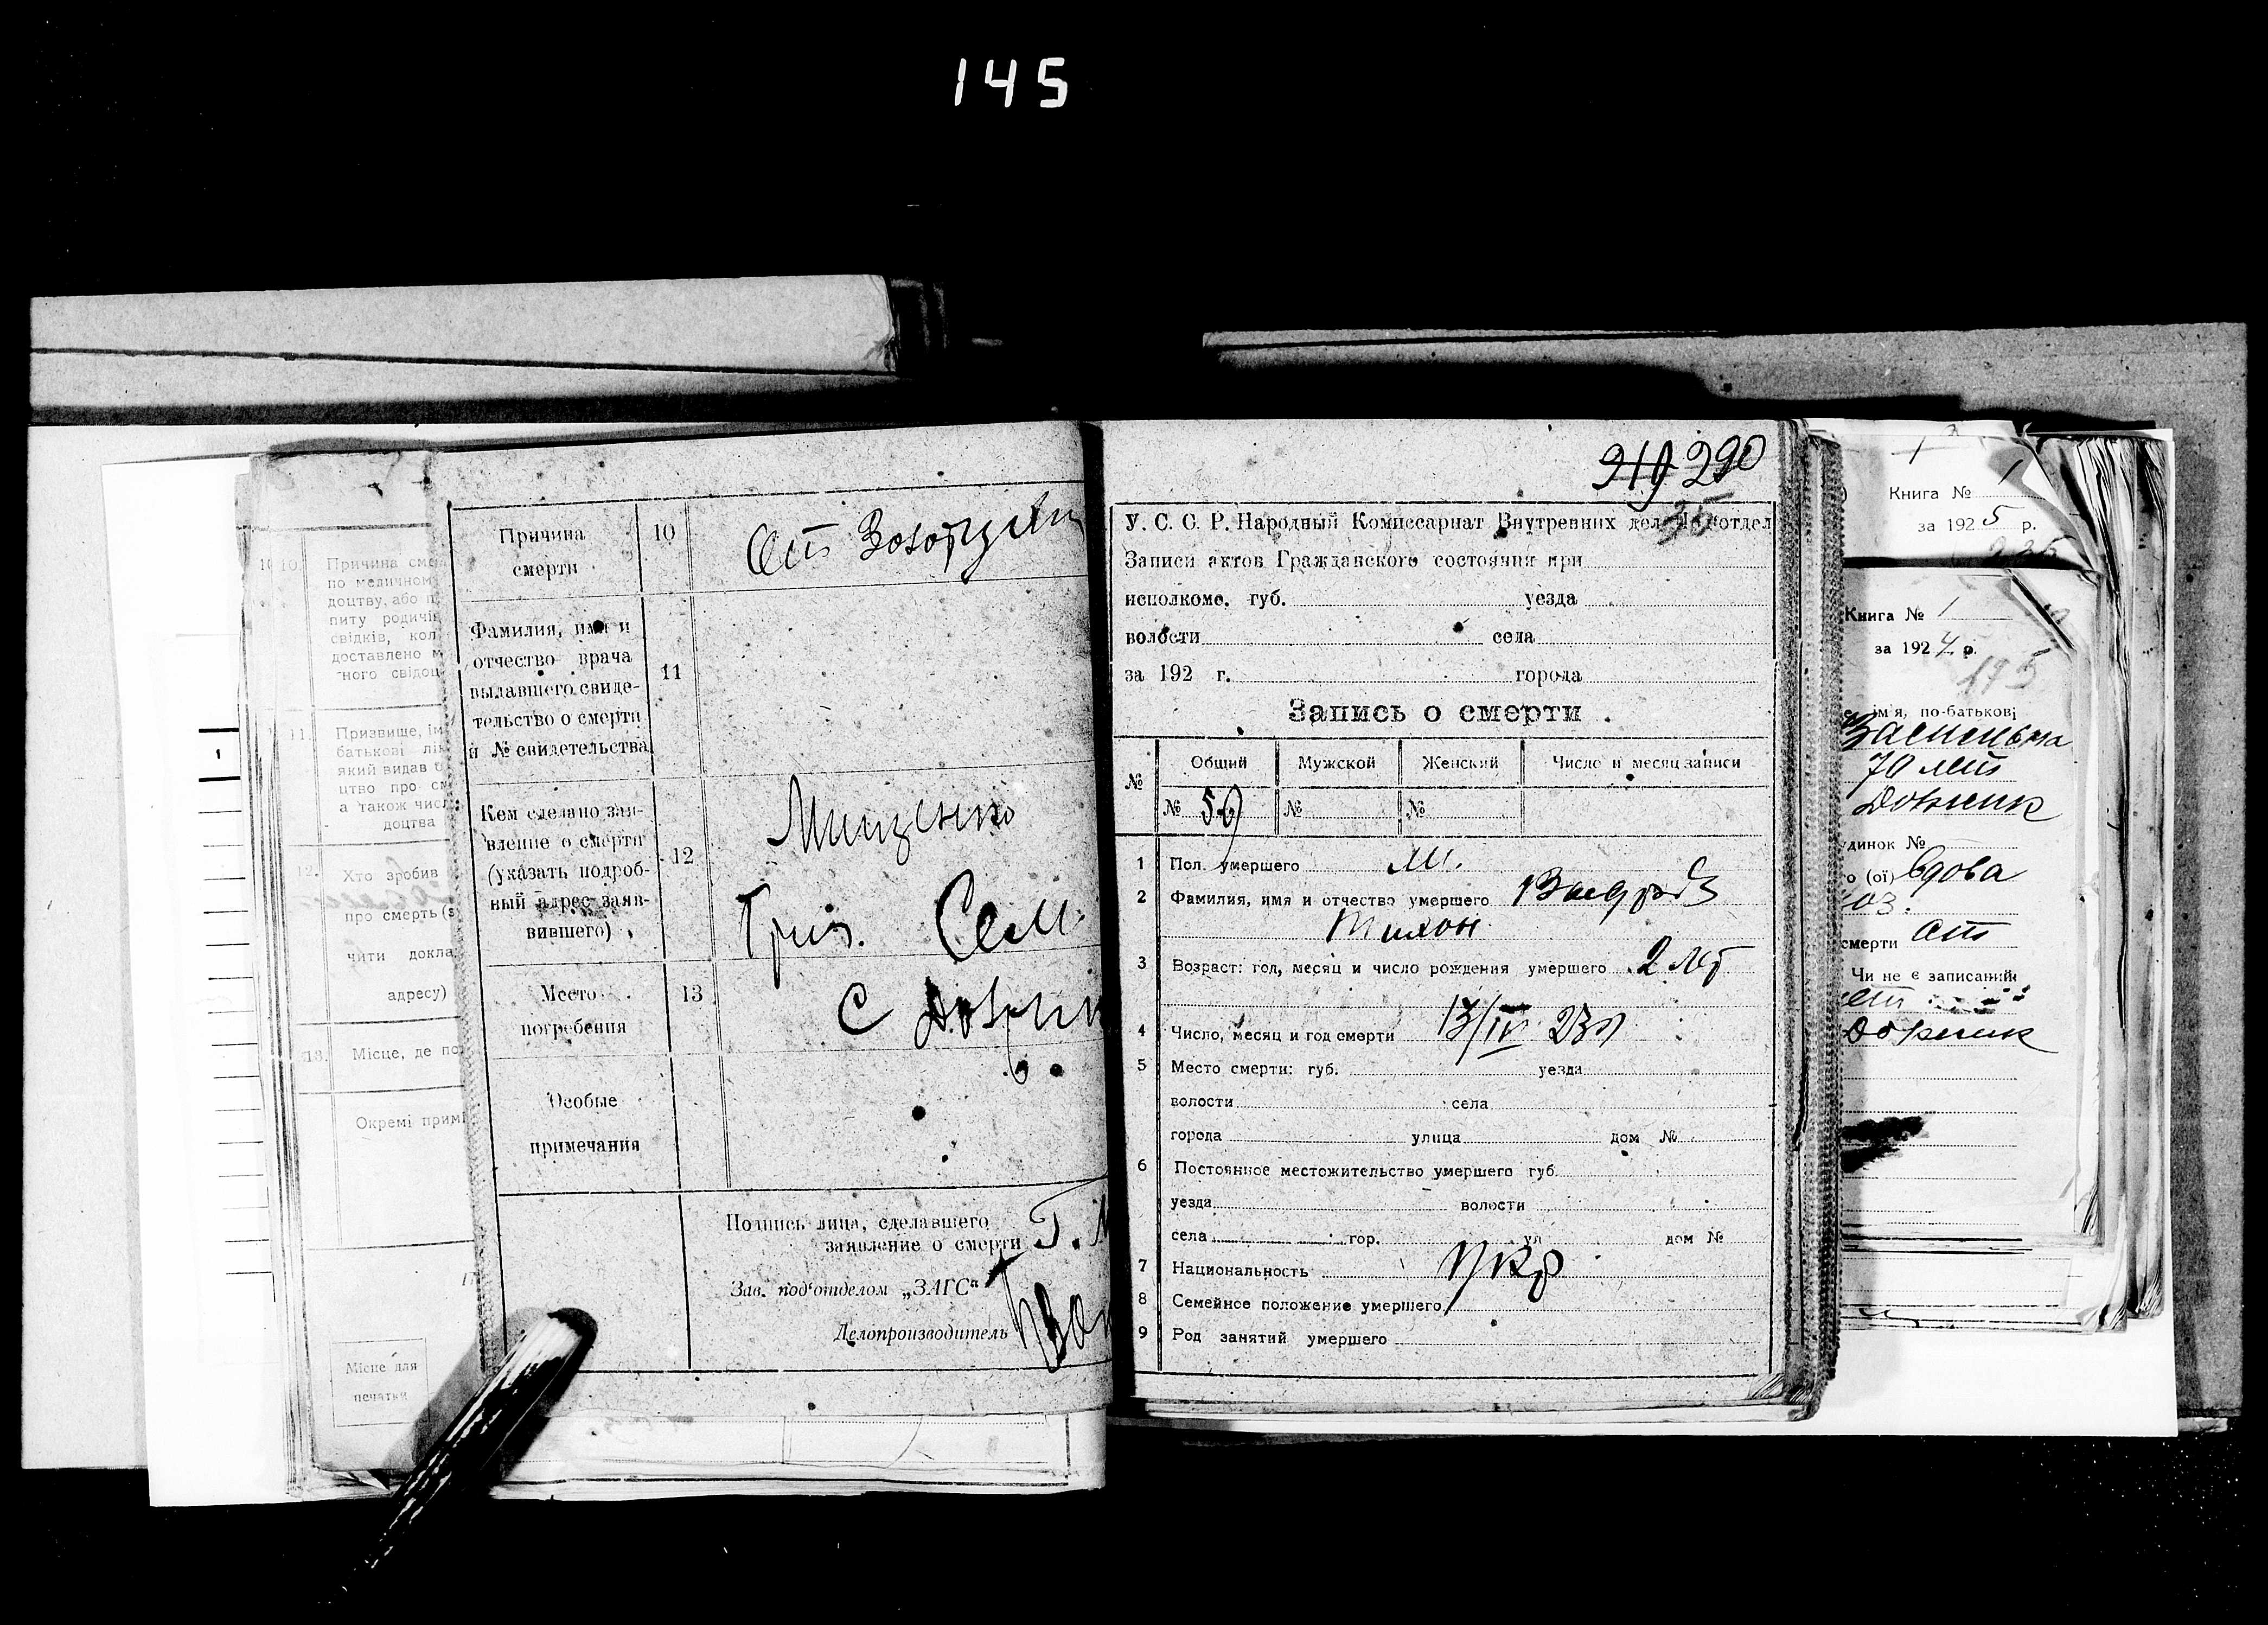 145
Причина
смерти
10
От
Фамилия, имя и
отчество врача
выдавшего свиде-
тельство о смерти
и № свидетельства
11
Кем сделано зая-
вление о смерти
(указать подроб-
ный адрес заяв-
вившего)
12
Мищенко
Григ. Сем.
Место
погребения
13
С
Особые
примечания
Подпись лица, сделавшего
заявление о смерти
Г. М
Зав. под‘отделом „ЗАГС“
Делопроизводитель
10.
Причина сме
по медичном
доцтву, або п
питу родичів
свідків, кол
доставлено м
ного свідоц
11.
Призвище, ім
батькові лік
який видав с
цтво про см
а також чис
доцтва
12.
Хто зробив
про смерть (з
чити докла
адресу)
13.
Місце, де по
Окремі примі
Місце для
печатки
1
219 290
35
У. С. С. Р. Народный Комиссариат Внутренних дел Подотдел
Записи актов Гражданского состояния при
исполкоме. губ. уезда
волости села
за 192 г. города
Запись о смерти
№ Общий Мужской Женский Число и месяц записи
№ 59 № №
1 Пол умершего м.
2 Фамилия, имя и отчество умершего
Тихон
3 Возраст: год, месяц и число рождения умершего 2 лет
4 Число, месяц и год смерти 13/IV 23
5 Место смерти: губ. уезда
волости села
города улица дом №
6 Постоянное местожительство умершего губ.
уезда волости
села гор. ул дом №
7 Национальность Укр
8 Семейное положение умершего
9 Род занятий умершего
Книга № 1
за 1925 р.
Книга № 1
за 1924 р.
195
ім'я, по-батькові
70 лет
динок №
о (ої) вдова
смерти от
Чи не є записаний